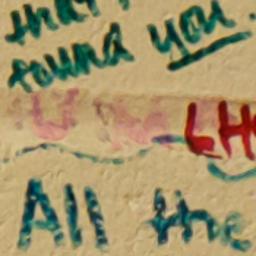 that,
found you.
LH
All the